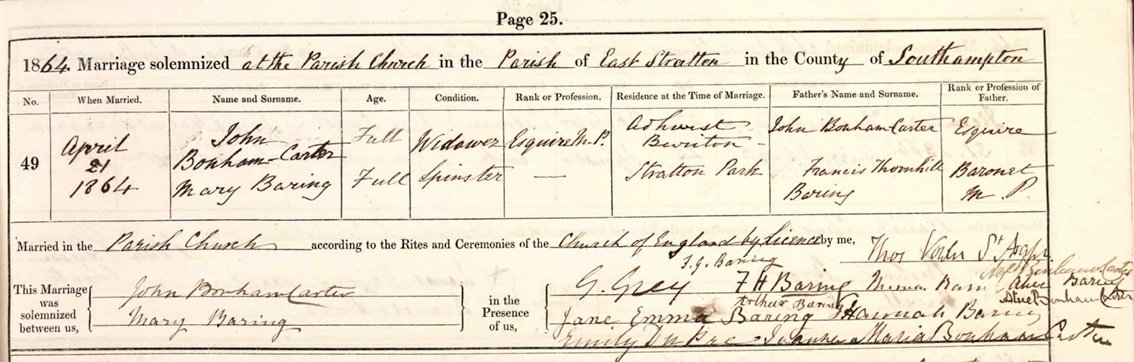 Page 25.
1864 Marriage solemnized at the Parish Church in the Parish of East Stratton in the County of Southampton
No. When Married. Name and Surname. Age. Condition. Rank or Profession. Residence at the Time of Marriage. Father's Name and Surname. Rank or Profession of Father.
49 April 21 1864
John Bonham-Carter Full Widower Esquire M.P. Adhurst Buriton John Bonham Carter Esquire
Mary Baring Full Spinster — Stratton Park Francis Thornhill Baring Baronet M.P.
Married in the Parish Church according to the Rites and Ceremonies of the Church of England by licence by me,
This Marriage was solemnized between us,
John Bonham Carter
Mary Baring
in the Presence of us,
F. G. Baring
G. Grey F H Baring Alice Baring
Arthur Baring
Jane Emma Baring Hannah Baring
Emily Joanna Maria Bonham Carter